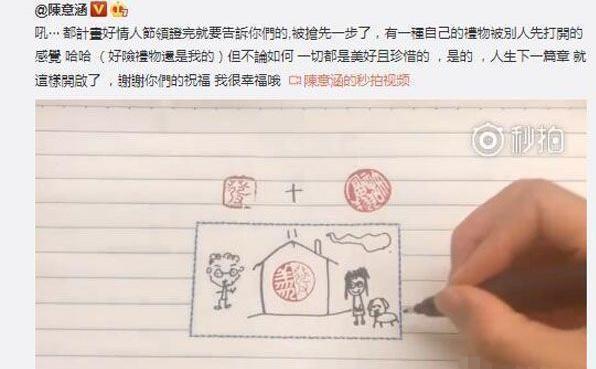 @陳意涵
吼⋯ 都計畫好情人節領證完就要告訴你們的,被搶先一步了，有一種自己的禮物被別人先打開的
感覺 哈哈 （好險禮物還是我的）但不論如何 一切都是美好且珍惜的 ，是的 ，人生下一篇章 就
這樣開啟了 ，謝謝你們的祝福 我很幸福哦 陳意涵的秒拍视频
秒拍
發 +